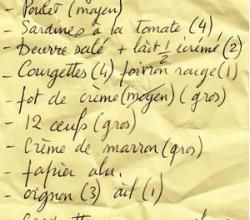 - Poulet (moyen)
- Sardines à la tomate (4)
- Beurre salé + lait 1/2 crémé (2)
- Courgettes (4) poivron rouge (1)
- pot de crème (moyen) (gros)
- 12 œufs (gros)
- Crème de marron (gros)
- papier alu.
- oignon (3) ail (1)